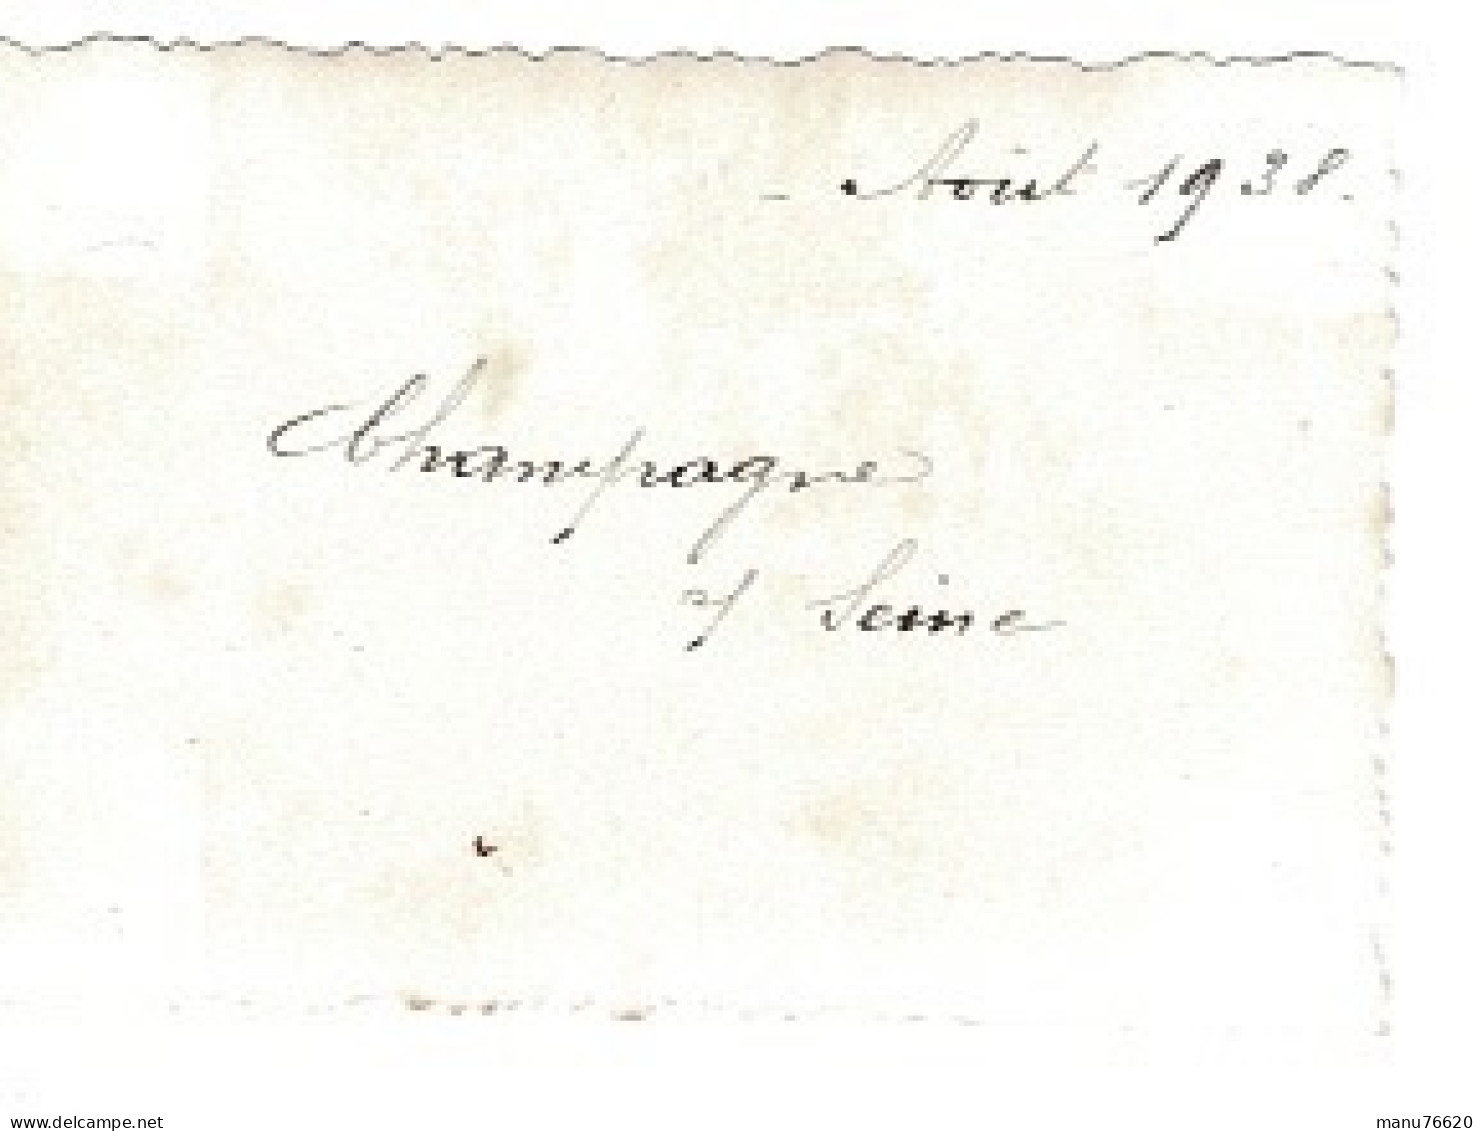 - Août 1938.
Champagne
s/ Seine
www.delcampe.net
manu76620